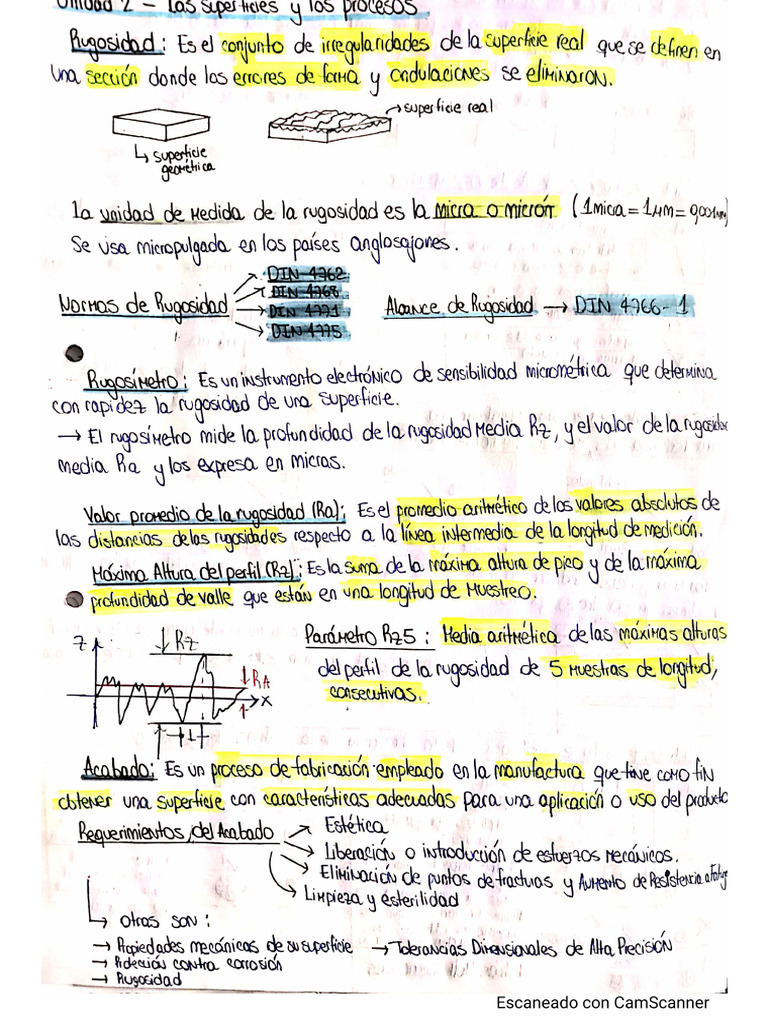 Unidad 2 - Las superficies y los procesos.
Rugosidad: Es el conjunto de irregularidades de la superficie real que se definen en
una sección donde los errores de forma y ondulaciones se eliminaron.
superficie real
superficie
geométrica
La unidad de medida de la rugosidad es la micra o micrón (1mica = 1μm = 0,001mm)
Se usa micropulgada en los países anglosajones.
Normas de Rugosidad
DIN 4762
DIN 4768
DIN 4771
DIN 4775
Alcance de Rugosidad → DIN 4766-1
Rugosímetro: Es un instrumento electrónico de sensibilidad micrométrica que determina
con rapidez la rugosidad de una superficie.
→ El rugosímetro mide la profundidad de la rugosidad media Rz, y el valor de la rugosidad
media Ra y los expresa en micras.
Valor promedio de la rugosidad (Ra): Es el promedio aritmético de los valores absolutos de
las distancias de las rugosidades respecto a la línea intermedia de la longitud de medición.
Máxima Altura del perfil (Rz): Es la suma de la máxima altura de pico y de la máxima
profundidad de valle que están en una longitud de muestreo.
Z
Rz
RA
X
Parámetro Rz5: Media aritmética de las máximas alturas
del perfil de la rugosidad de 5 muestras de longitud,
consecutivas.
Acabado: Es un proceso de fabricación empleado en la manufactura que tiene como fin
obtener una superficie con características adecuadas para una aplicación o uso del producto
Requerimientos del Acabado
Estética
Liberación o introducción de esfuerzos mecánicos.
Eliminación de puntos de fracturas y Aumento de Resistencia a Fatiga
Limpieza y esterilidad
otras son:
→ Propiedades mecánicas de su superficie → Tolerancias Dimensionales de Alta Precisión
→ contra corrosión
→ Rugosidad
Escaneado con CamScanner